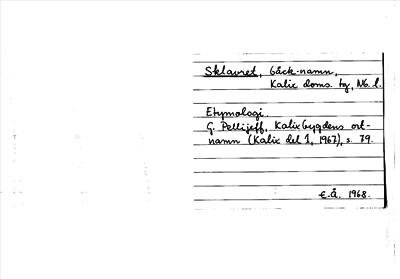 Sklavret, bäck-namn,
Kalix doms. tg, Nb. l.
Etymologi.
G. Pellijeff, Kalixbygdens ort-
namn (Kalix del 1, 1967), s. 79.
E.Å. 1968.